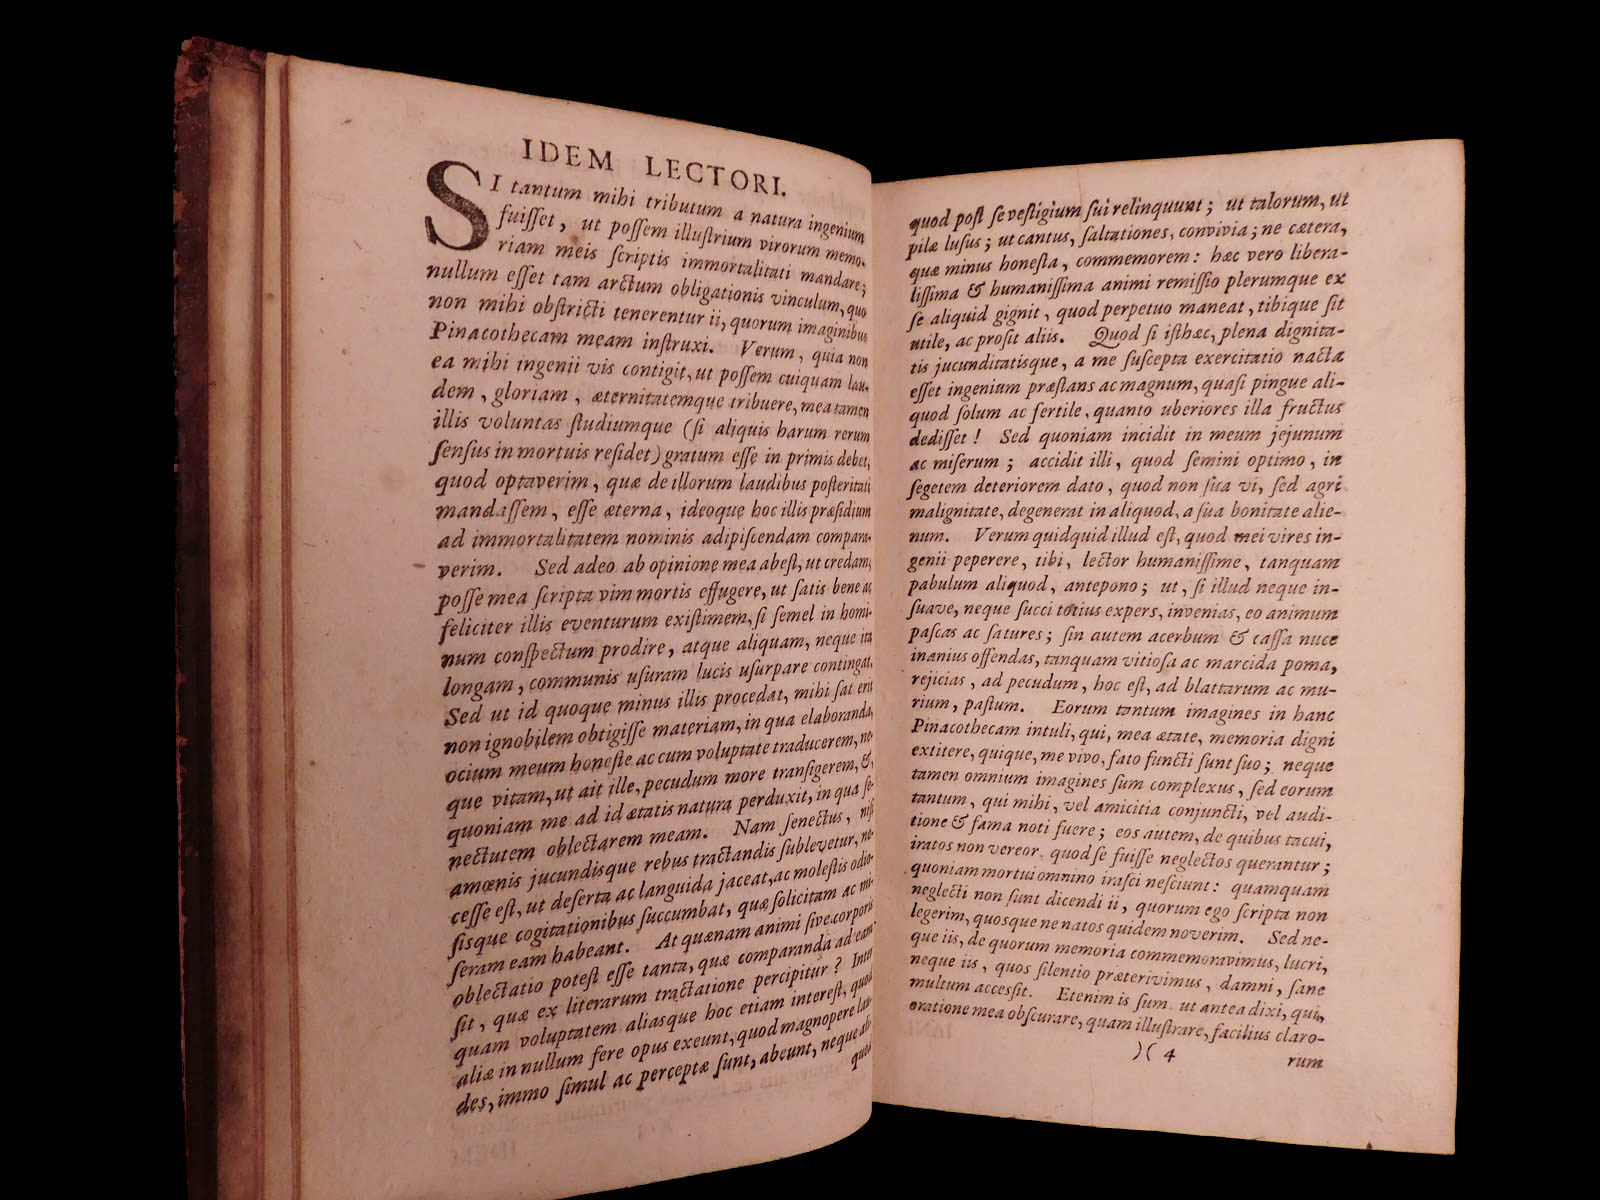 IDEM LECTORI.
SI tantum mihi tributum a natura ingenium
fuiſſet, ut poſſem illuſtrium virorum memo-
riam meis ſcriptis immortalitati mandare;
nullum eſſet tam arctum obligationis vinculum, quo
non mihi obſtricti tenerentur ii, quorum imaginibus
Pinacothecam meam inſtruxi. Verum, quia non
ea mihi ingenii vis contigit, ut poſſem cuiquam lau-
dem, gloriam, æternitatemque tribuere, mea tamen
illis voluntas ſtudiumque (ſi aliquis harum rerum
ſenſus in mortuis reſidet) gratum eſſe in primis debet,
quod optaverim, quæ de illorum laudibus poſteritati
mandaſſem, eſſe æterna, ideoque hoc illis præſidium
ad immortalitatem nominis adipiſcendam compara-
verim. Sed adeo ab opinione mea abeſt, ut credam,
poſſe mea ſcripta vim mortis effugere, ut ſatis bene ac
feliciter illis eventurum exiſtimem, ſi ſemel in homi-
num conſpectum prodire, atque aliquam, neque ita
longam, communis uſuram lucis uſurpare contingat.
Sed ut id quoque minus illis procedat, mihi ſat erit
non ignobilem obtigiſſe materiam, in qua elaboranda,
ocium meum honeſte ac cum voluptate traducerem, ne-
que vitam, ut ait ille, pecudum more tranſigerem, &,
quoniam me ad id ætatis natura perduxit, in qua ſe-
nectutem oblectarem meam. Nam ſenectus, niſi
amœnis jucundisque rebus tractandis ſublevetur, ne-
ceſſe eſt, ut deſerta ac languida jaceat, ac moleſtis odio-
ſisque cogitationibus ſuccumbat, quæ ſolicitam ac mi-
ſeram eam habeant. At quænam animi ſive corporis
oblectatio poteſt eſſe tanta, quæ comparanda ad eam
ſit, quæ ex literarum tractatione percipitur? Inter
quam voluptatem aliasque hoc etiam intereſt, quod
aliæ in nullum fere opus exeunt, quod magnopere lau-
des, immo ſimul ac perceptæ ſunt, abeunt, neque ali-
quod
quod poſt ſe veſtigium ſui relinquunt; ut talorum, ut
pilæ luſus; ut cantus, ſaltationes, convivia; ne cætera,
quæ minus honeſta, commemorem: hæc vero libera-
liſſima & humaniſſima animi remiſſio plerumque ex
ſe aliquid gignit, quod perpetuo maneat, tibique ſit
utile, ac proſit aliis. Quod ſi iſthæc, plena dignita-
tis jucunditatisque, a me ſuſcepta exercitatio nacta
eſſet ingenium præſtans ac magnum, quaſi pingue ali-
quod ſolum ac fertile, quanto uberiores illa fructus
dediſſet! Sed quoniam incidit in meum jejunum
ac miſerum; accidit illi, quod ſemini optimo, in
ſegetem deteriorem dato, quod non ſua vi, ſed agri
malignitate, degenerat in aliquod, a ſua bonitate alie-
num. Verum quidquid illud eſt, quod mei vires in-
genii peperere, tibi, lector humaniſſime, tanquam
pabulum aliquod, antepono; ut, ſi illud neque in-
ſuave, neque ſucci totius expers, invenias, eo animum
paſcas ac ſatures; ſin autem acerbum & caſſa nuce
inanius offendas, tanquam vitioſa ac marcida poma,
rejicias, ad pecudum, hoc eſt, ad blattarum ac mu-
rium, paſtum. Eorum tantum imagines in hanc
Pinacothecam intuli, qui, mea ætate, memoria digni
extitere, quique, me vivo, fato functi ſunt ſuo; neque
tamen omnium imagines ſum complexus, ſed eorum
tantum, qui mihi, vel amicitia conjuncti, vel audi-
tione & fama noti fuere; eos autem, de quibus tacui,
iratos non vereor, quod ſe fuiſſe neglectos querantur;
quoniam mortui omnino iraſci neſciunt: quamquam
neglecti non ſunt dicendi ii, quorum ego ſcripta non
legerim, quosque ne natos quidem noverim. Sed ne-
que iis, de quorum memoria commemoravimus, lucri,
neque iis, quos ſilentio præterivimus, damni, ſane
multum acceſſit. Etenim is ſum, ut antea dixi, qui,
oratione mea obſcurare, quam illuſtrare, facilius claro-
)( 4 rum